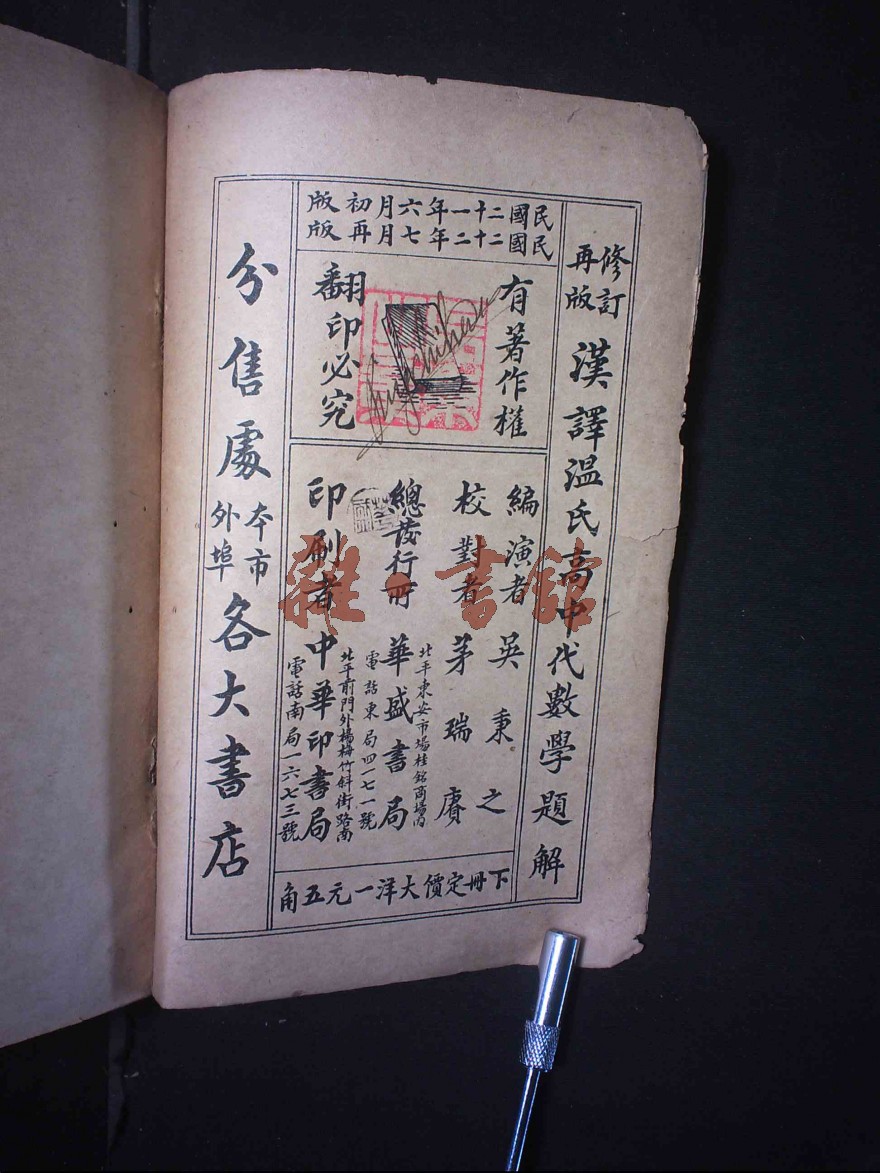 修訂
再版
漢譯温氏高中代數學題解
民國二十一年六月初版
民國二十二年七月再版
有著作權
翻印必究
編演者 吳秉之
校對者 茅瑞賡
總發行所 華盛書局
北平東安市場桂銘商場內
電話東局四一七一號
印刷者 中華印書局
北平前門外楊梅竹斜街路南
電話南局一六七三號
下冊定價大洋一元五角
分售處
本市
外埠
各大書店
雜·書館